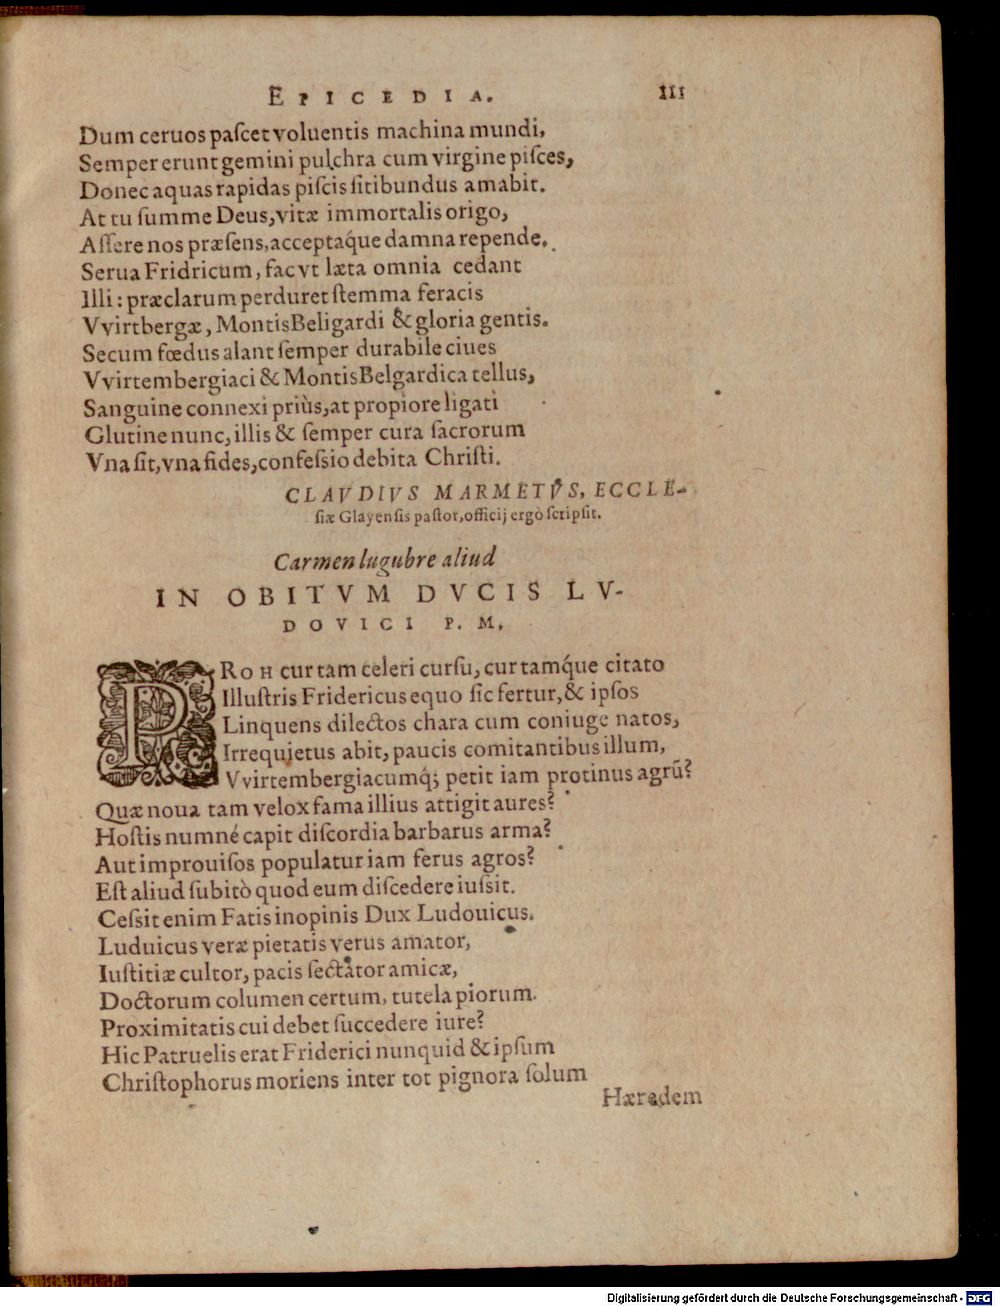 EPICEDIA. III
Dum ceruos paſcet voluentis machina mundi,
Semper erunt gemini pulchra cum virgine piſces,
Donec aquas rapidas piſcis ſitibundus amabit.
At tu ſumme Deus, vitæ immortalis origo,
Aſſere nos præſens, acceptaq́ue damna repende.
Serua Fridricum, fac vt læta omnia cedant
Illi: præclarum perduret ſtemma feracis
Vvirtbergæ, Montis Beligardi & gloria gentis.
Secum fœdus alant ſemper durabile ciues
Vvirtembergiaci & Montis Belgardica tellus,
Sanguine connexi priùs, at propiore ligati
Glutine nunc, illis & ſemper cura ſacrorum
Vna ſit, vna fides, confeſsio debita Chriſti.
CLAVDIVS MARMETVS, ECCLE-
ſiæ Glayenſis paſtor, officij ergò ſcripſit.
Carmen lugubre aliud
IN OBITVM DVCIS LV-
DOVICI P. M.
PROH cur tam celeri curſu, cur tamq́ue citato
Illuſtris Fridericus equo ſic fertur, & ipſos
Linquens dilectos chara cum coniuge natos,
Irrequietus abit, paucis comitantibus illum,
Vvirtembergiacumq́; petit iam protinus agrū?
Quæ noua tam velox fama illius attigit aures?
Hoſtis numné capit diſcordia barbarus arma?
Aut improuiſos populatur iam ferus agros?
Eſt aliud ſubitò quod eum diſcedere iuſsit.
Ceſsit enim Fatis inopinis Dux Ludouicus.
Luduicus veræ pietatis verus amator,
Iuſtitiæ cultor, pacis ſectator amicæ,
Doctorum columen certum, tutela piorum.
Proximitatis cui debet ſuccedere iure?
Hic Patruelis erat Friderici nunquid & ipſum
Chriſtophorus moriens inter tot pignora ſolum
Hæredem
Digitalisierung gefördert durch die Deutsche Forschungsgemeinschaft - DFG